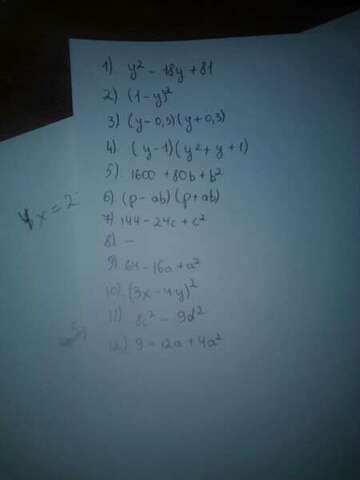 1) y² - 18y + 81
2) (1-y)²
3) (y-0,3)(y+0,3)
4) (y-1)(y²+y+1)
5) 1600 + 80b + b²
6) (p-ab)(p+ab)
7) 144 - 24c + c²
8) -
9) 64 - 16a + a²
10) (3x-4y)²
11) 8c² - 9d²
12) 9 - 12a + 4a²
x = 2